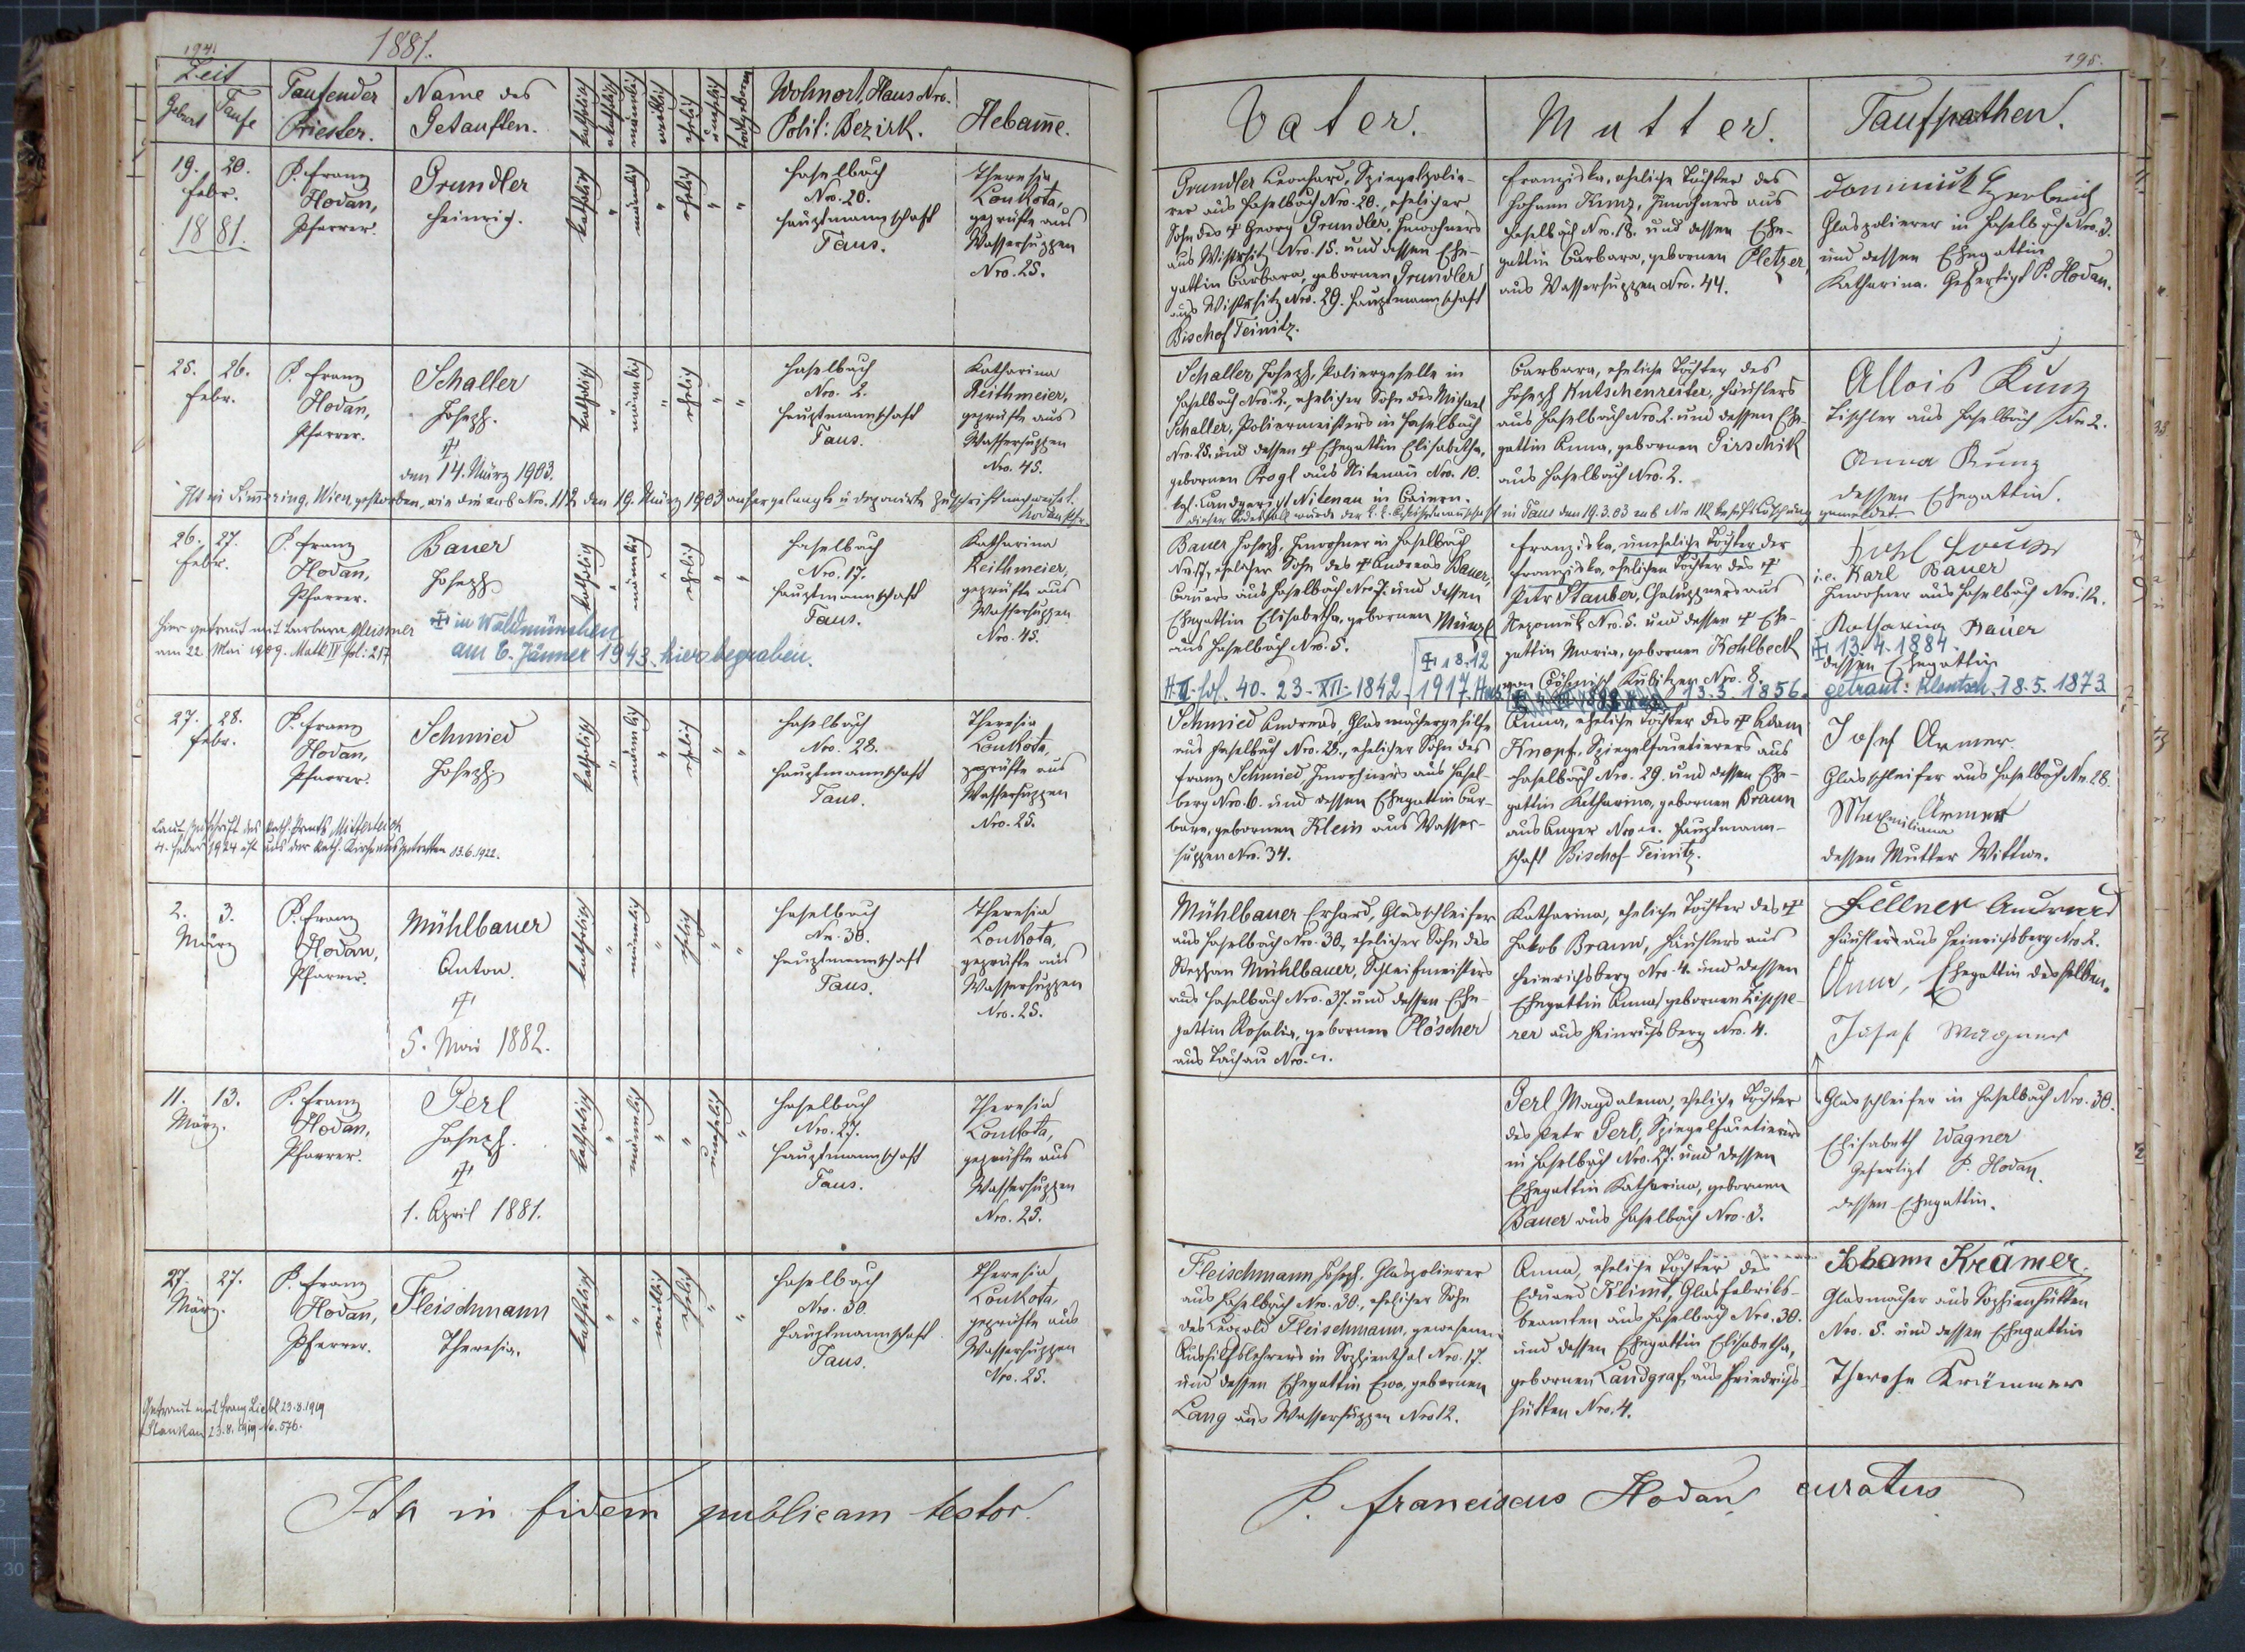 194.
1881.
Zeit
Geburt
Taufe
Taufender
Priester.
Name des
Getauften.
katholisch
männlich
weiblich
ehelich
unehelich
todtgeboren
Wohnort, Haus Nro.
Polit: Bezirk.
Hebam̄e.
19. 20.
Febr.
1881.
P. Franz
Hodan,
Pfarrer.
Grundler
Heinrich.
katholisch
"
männlich
"
ehelich
"
"
Haselbach
Nro. 20.
Hauptmannschaft
Taus.
Theresia
Loukota,
geprüfte aus
Wassersuppen
Nro. 25.
25. 26.
Febr.
P. Franz
Hodan,
Pfarrer.
Schaller
Joseph.
den 14. März 1903.
katholisch
"
männlich
"
ehelich
"
"
Haselbach
Nro. 2.
Hauptmannschaft
Taus.
Katharina
Reithmeier,
geprüfte aus
Wassersuppen
Nro. 45.
Ist in Simering, Wien, gestorben, wie die sub Nro. 112 den 19. März 1903 anher gelangte u deponirte Zuschrift nachweiset.
Hodan Pfr.
26. 27.
Febr.
P. Franz
Hodan,
Pfarrer.
Bauer
Joseph.
katholisch
"
männlich
"
ehelich
"
"
Haselbach
Nro. 17.
Hauptmannschaft
Taus.
Katharina
Reithmeier,
geprüfte aus
Wassersuppen
Nro. 45.
Hier getraut mit Barbara Gleixner
am 22. Mai 1909. Matk IV fol: 217
in Waldmünchen
am 6. Jänner 1943. hier begraben.
27. 28.
Febr.
P. Franz
Hodan,
Pfarrer.
Schmied
Joseph.
katholisch
"
männlich
"
ehelich
"
"
Haselbach
Nro. 28.
Hauptmannschaft
Taus.
Theresia
Loukota,
geprüfte aus
Wassersuppen
Nro. 25.
Laut Zuschrift des Kath. Pframts Mitterteich
1924 ist aus der kath. Kirche ausgetreten 13.6.1922.
2. 3.
März
P. Franz
Hodan,
Pfarrer.
Mühlbauer
Anton.
5. Mai 1882.
katholisch
"
männlich
"
ehelich
"
"
Haselbach
Nr. 30.
Hauptmannschaft
Taus.
Theresia
Loukota,
geprüfte aus
Wassersuppen
Nro. 25.
11. 13.
März.
P. Franz
Hodan,
Pfarrer.
Perl
Joseph.
1. April 1881.
katholisch
"
männlich
"
"
unehelich
"
Haselbach
Nro. 27.
Hauptmannschaft
Taus.
Theresia
Loukota,
geprüfte aus
Wassersuppen
Nro. 25.
27. 27.
März.
P. Franz
Hodan,
Pfarrer.
Fleischmann
Theresia.
katholisch
"
"
weiblich
ehelich
"
"
Haselbach
Nro. 30.
Hauptmannschaft
Taus.
Theresia
Loukota,
geprüfte aus
Wassersuppen
Nro. 25.
Getraut mit Franz Liebl 23.8.1919
Stankau 23.8.1919 No. 576.
Ita in fidem publicam testor.
195.
Vater.
Mutter.
Taufpathen.
Grundler Leonhard, Spiegelpolie-
rer aus Haselbach Nro. 20., ehelicher
Sohn des Georg Grundler, Inwohners
aus Wistrsitz Nro. 15. und dessen Ehe-
gattin Barbara, gebornen Grundler
aus Wistrsitz Nro. 29. Hauptmannschaft
Bischof Teinitz.
Franziska, eheliche Tochter des
Johann Kunz, Inwohners aus
Haselbach Nro. 18. und dessen Ehe-
gattin Barbara, gebornen Pletzer,
aus Wassersuppen Nro. 44.
Dominick
Glaspolierer in Haselbach Nro. 3.
und dessen Ehegattin
Katharina. Gefertigt P. Hodan.
Schaller Joseph, Poliergeselle in
Haselbach Nro. 2., ehelicher Sohn des Michael
Schaller, Poliermeisters in Haselbach
Nro. 25. und dessen Ehegattin Elisabetha,
gebornen Progl aus Nitenau Nro. 10.
kgl. Landgericht Nitenau in Baiern.
Barbara, eheliche Tochter des
Joseph Kutschenreiter, Häuslers
aus Haselbach Nro. 2. und dessen Ehe-
gattin Anna, gebornen Girschik
aus Haselbach Nro. 2.
Allois Kunz
Tischler aus Haselbach Nr. 2.
Anna Kunz
dessen Ehegattin.
Dieser Todesfall wurde der k. k. Bezirkshauptmannschaft in Taus den 19.3.03 sub Nro 112 behufs Löschung gemeldet.
Bauer Joseph, Inwohner in Haselbach
Nr 17, ehelicher Sohn des Andreas Bauer,
Bauers aus Haselbach Nro 7. und dessen
Ehegattin Elisabetha, gebornen Münzl
aus Haselbach Nro. 5.
H. II. fol. 40. 23. XII. 1842.
18.12
1917.
Franziska, uneheliche Tochter der
Franziska, ehelichen Tochter des
Peter Stauber, Chaluppners aus
Nepomuk Nro. 5. und dessen Ehe-
gattin Maria, gebornen Kohlbeck
von Böhmisch Kubitzen Nro. 8.
13.3 1856.
i. e. Karl Bauer
Inwohner aus Haselbach Nro. 12.
Katharina Bauer
13.4.1884.
dessen Ehegattin
getraut: Klentsch 18.5.1873
Schmied Andreas, Glasmachergehilfe
aus Haselbach Nro. 28., ehelicher Sohn des
Franz Schmied Inwohners aus Hasel-
berg Nro. 6. und dessen Ehegattin Bar-
bara, gebornen Klein aus Wasser-
suppen Nro. 34.
Anna, eheliche Tochter des Adam
Knopf, Spiegelfacetierers aus
Haselbach Nro. 29. und dessen Ehe-
gattin Katharina, gebornen Braun
aus Anger Nro . Hauptmann-
schaft Bischof-Teinitz.
Josef Armer
Glasschleifer aus Haselbach Nr. 28.
Maxemiliana Armer
dessen Mutter Wittwe.
Mühlbauer Erhard, Glasschleifer
aus Haselbach Nro. 30., ehelicher Sohn des
Stephan Mühlbauer, Schleifmeisters
aus Haselbach Nro. 37. und dessen Ehe-
gattin Rosalia, gebornen Plöscher
aus Tachau Nro.
Katharina, eheliche Tochter des
Jakob Braun, Häuslers aus
Heinrichsberg Nro. 4. und dessen
Ehegattin Anna, gebornen Zippe-
rer aus Heinrichsberg Nro. 4.
Fellner Andreas
Häusler aus Heinrichsberg Nro 2.
Anna, Ehegattin desselben.
Josef Wagner
Perl Magdalena, eheliche Tochter
des Peter Perl, Spiegelfacetierers
in Haselbach Nro. 27. und dessen
Ehegattin Katharina, gebornen
Bauer aus Haselbach Nro. 3.
Glasschleifer in Haselbach Nro. 30.
Elisabeth Wagner
Gefertigt P. Hodan.
dessen Ehegattin.
Fleischmann Joseph, Glaspolierer
aus Haselbach Nro. 30., ehelicher Sohn
des Leopold Fleischmann, gewesenen
Aushilfslehrers in Sophienthal Nro. 17.
und dessen Ehegattin Eva, gebornen
Lang aus Wassersuppen Nro 12.
Anna, eheliche Tochter des
Eduard Klimt, Glasfabriks-
beamten aus Haselbach Nro. 30.
und dessen Ehegattin Elisabetha,
gebornen Landgraf, aus Friedrichs-
hütten Nro. 4.
Johann Krämer.
Glasmacher aus Sophienhütten
Nro. 5. und dessen Ehegattin
Therese Krämmer
P. Franciscus Hodan, curatus